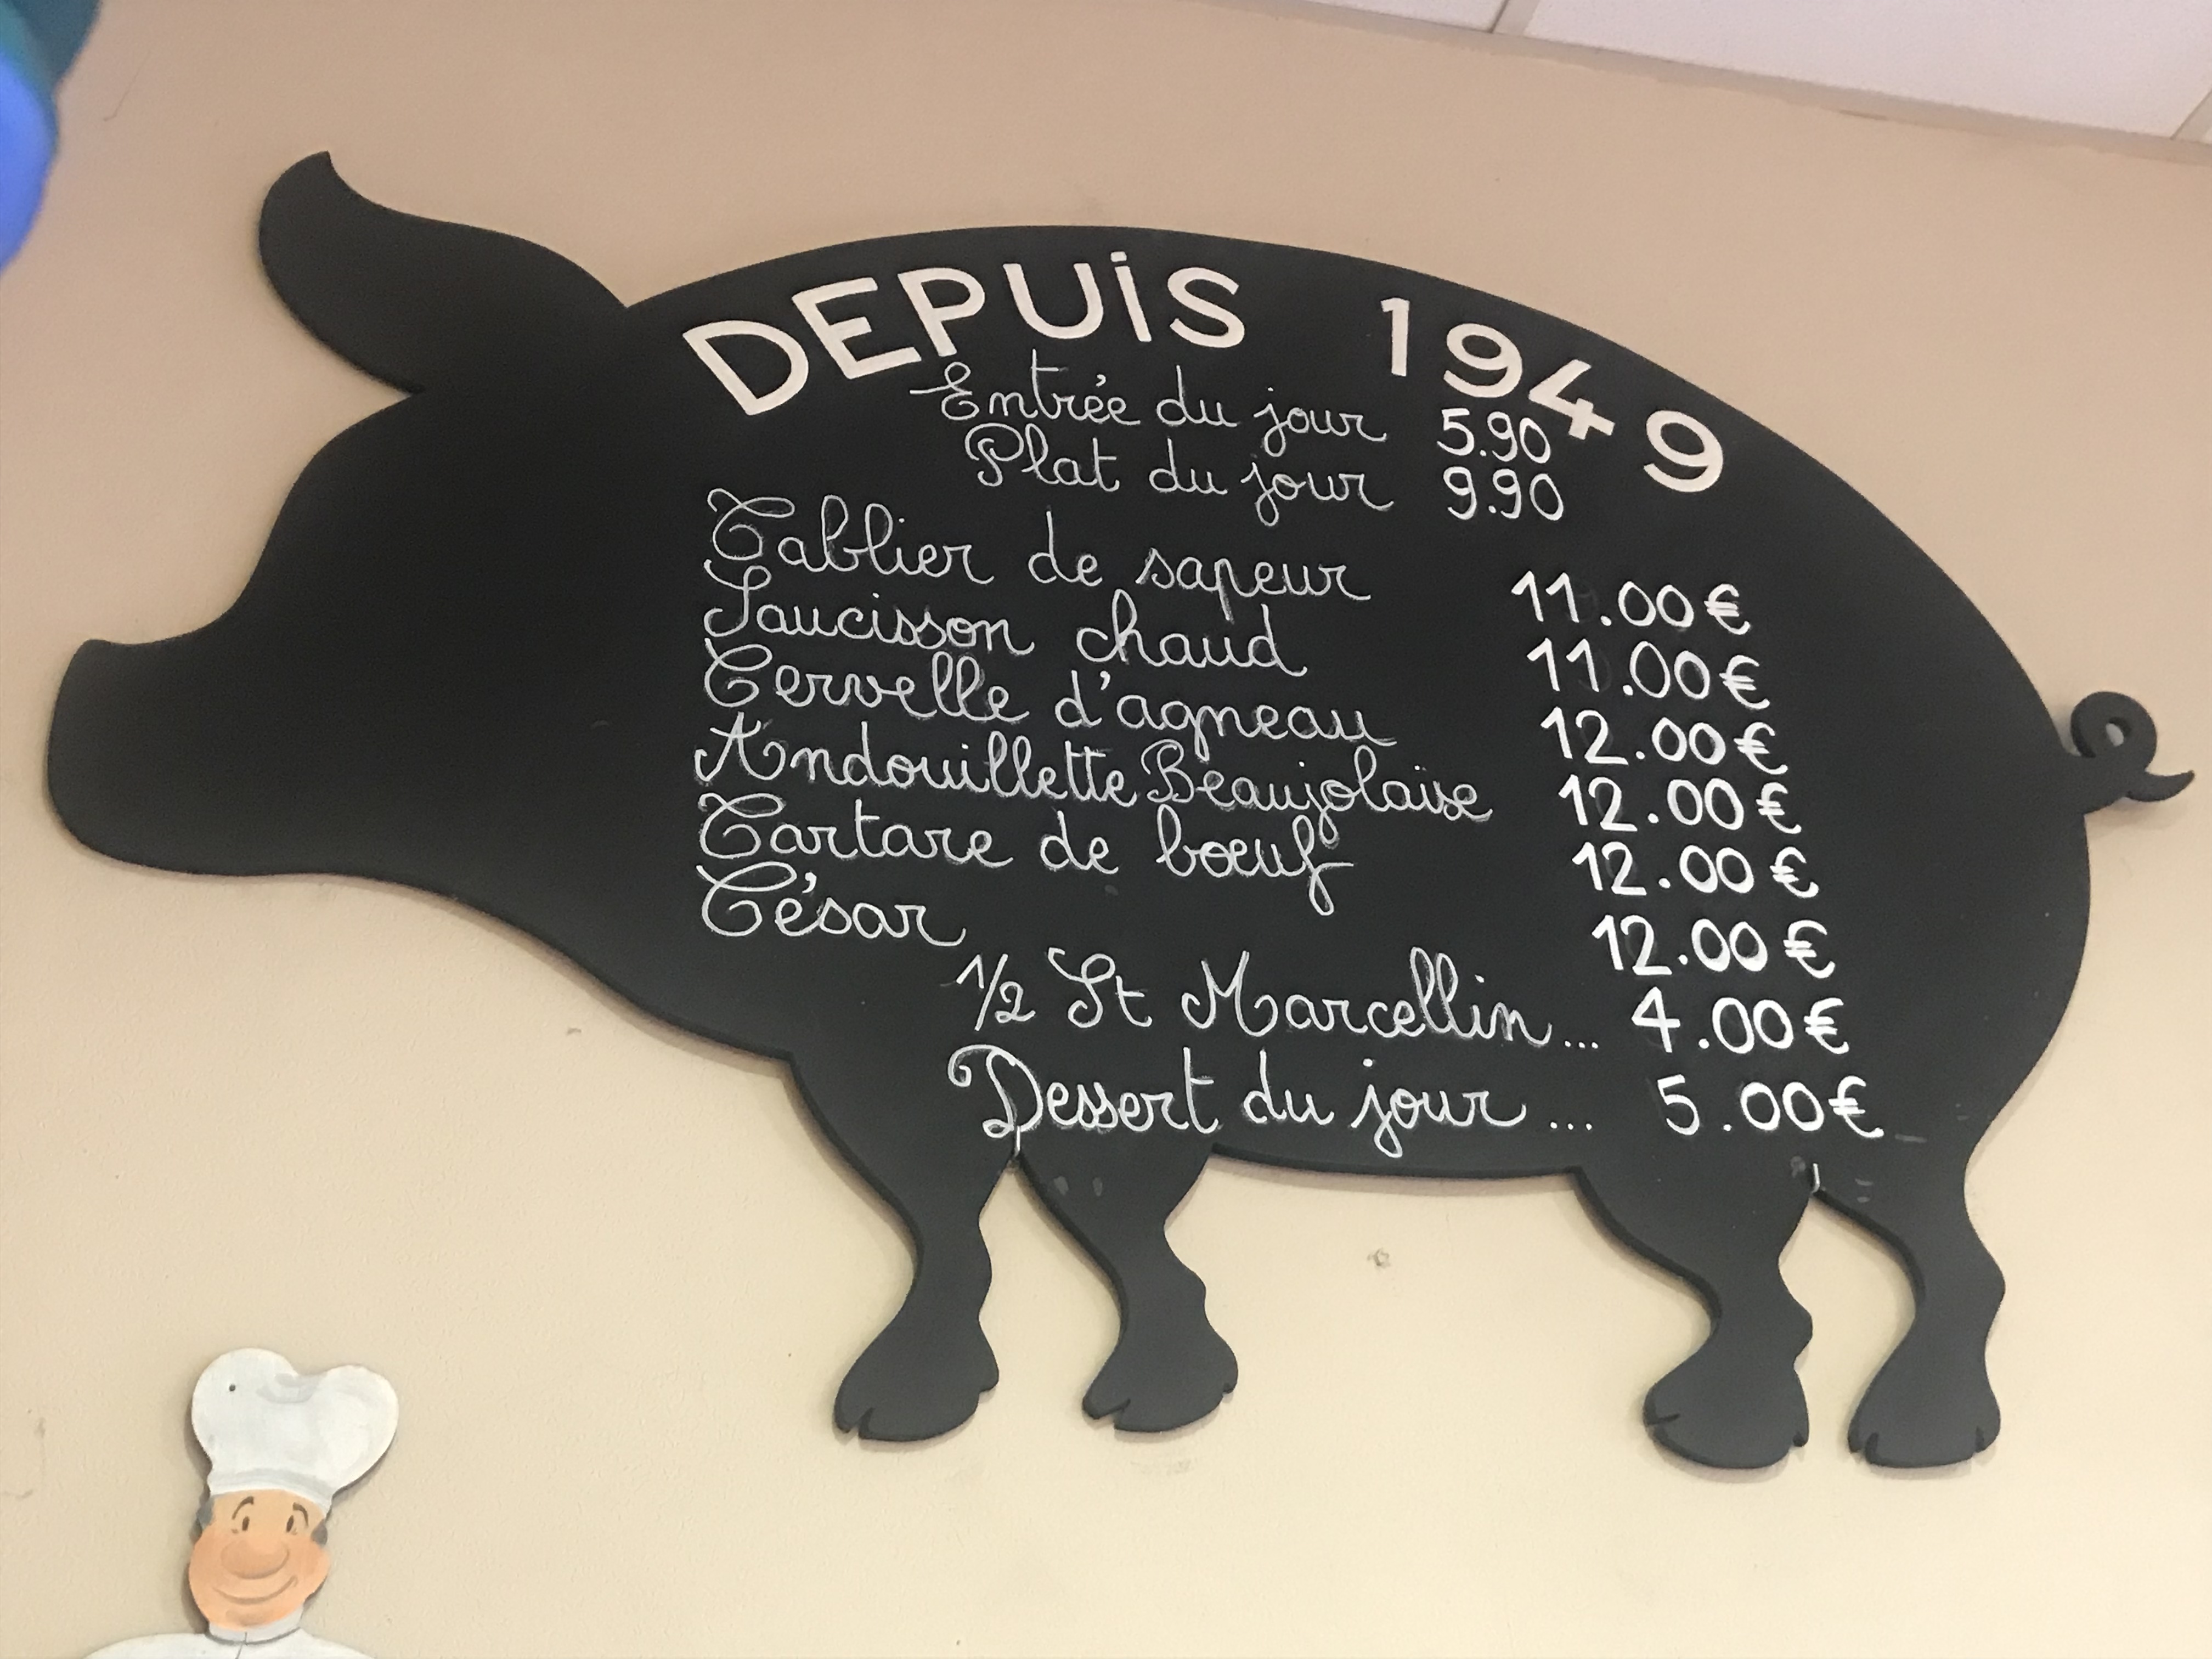 DEPUiS 1949
Entrée du jour 5.90
Plat du jour 9.90
Tablier de sapeur 11.00€
Saucisson chaud 11.00€
Cervelle d'agneau 12.00€
Andouillette Beaujolaise 12.00€
Tartare de bœuf 12.00€
César 12.00€
1/2 St Marcellin... 4.00€
Dessert du jour... 5.00€